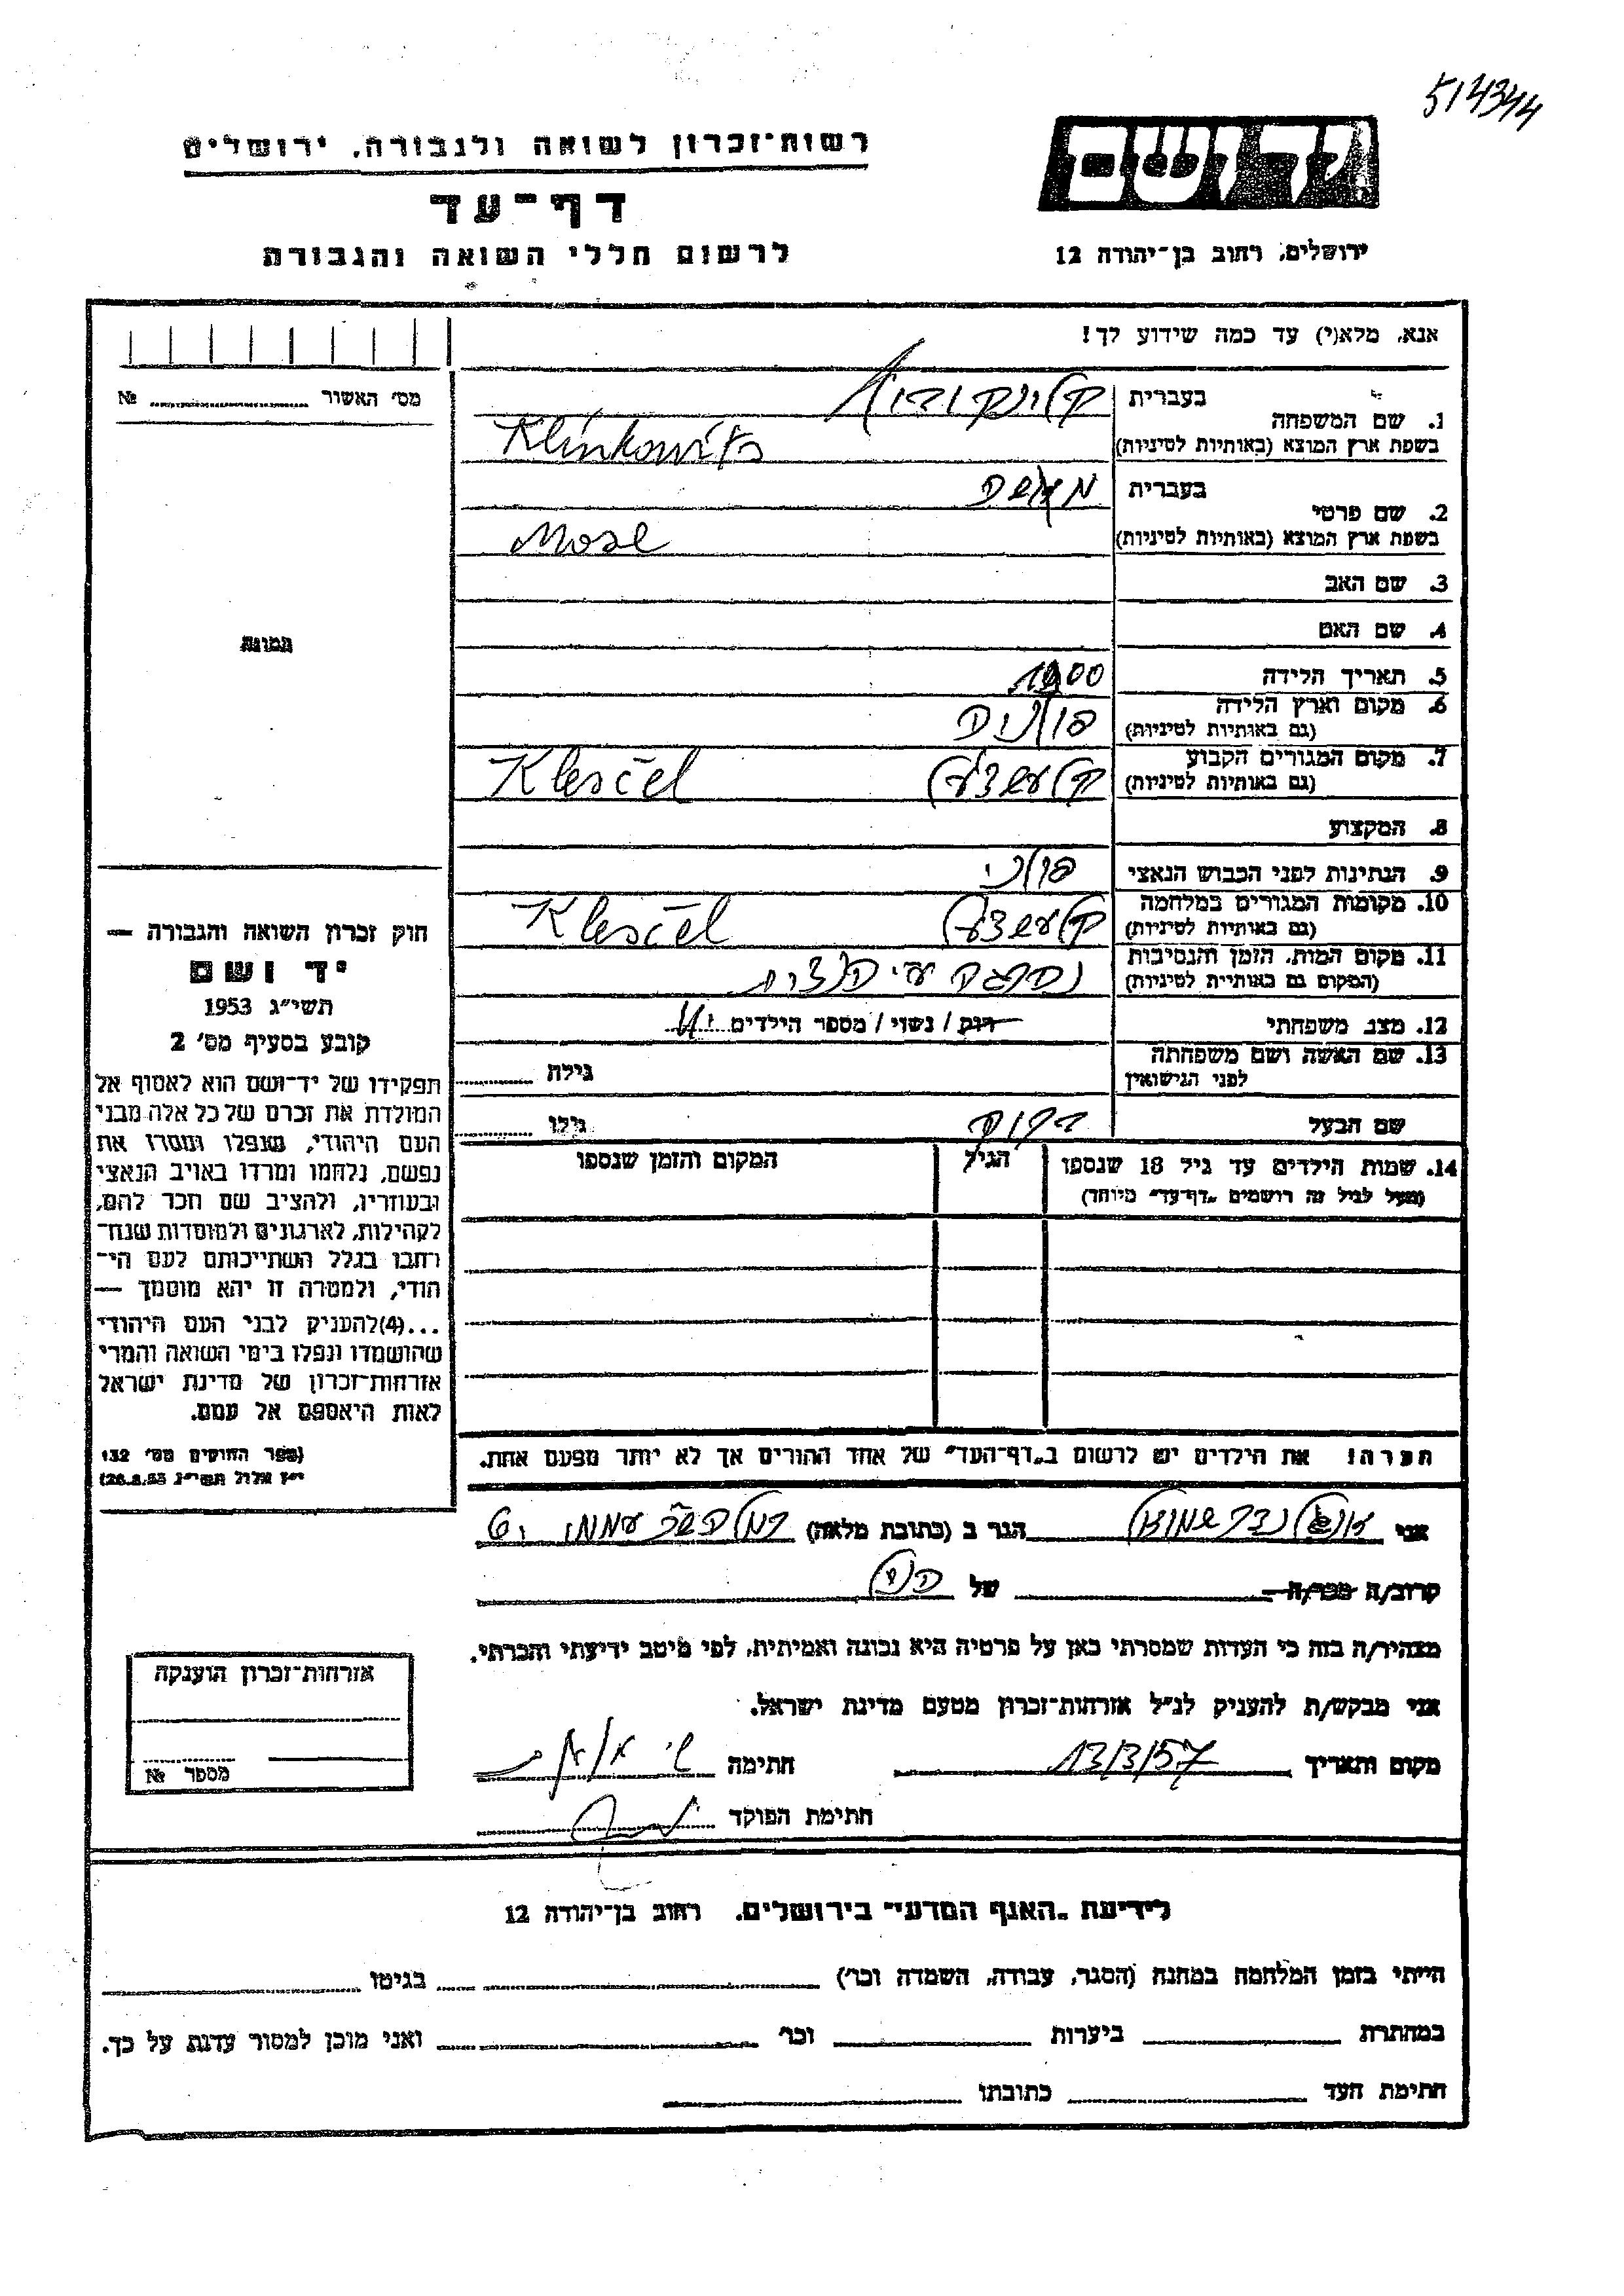 514344
יד ושם
רשות-זכרון לשואה ולגבורה, ירושלים
דף-עד
לרשום חללי השואה והגבורה
ירושלים, רחוב בן-יהודה 12
אנא, מלא(י) עד כמה שידוע לך!
מס' האשור № 
בעברית
1. שם המשפחה
בשפת ארץ המוצא (באותיות לטיניות) Klinkowits
בעברית
2. שם פרטי
בשפת ארץ המוצא (באותיות לטיניות) Mose
3. שם האב
4. שם האם
תמונה
5. תאריך הלידה 1900
6. מקום וארץ הלידה פולניה
(גם באותיות לטיניות)
7. מקום המגורים הקבוע קלעשצעל Klesčel
(גם באותיות לטיניות)
8. המקצוע
9. הנתינות לפני הכבוש הנאצי פולני
10. מקומות המגורים במלחמה קלעשצעל Klesčel
(גם באותיות לטיניות)
11. מקום המות, הזמן והנסיבות
(המקום גם באותיית לטיניות)
12. מצב משפחתי רוק / נשוי / מספר הילדים
13. שם האשה ושם משפחתה גילה
לפני הנישואין
שם הבעל גילו
14. שמות הילדים עד גיל 18 שנספו הגיל המקום והזמן שנספו
(מעל לגיל זה רושמים "דף-עד" מיוחד)
הערה! את הילדים יש לרשום ב"דף-העד" של אחד ההורים אך לא יותר מפעם אחת.
חוק זכרון השואה והגבורה —
יד ושם
תשי"ג 1953
קובע בסעיף מס' 2
תפקידו של יד-ושם הוא לאסוף אל
המולדת את זכרם של כל אלה מבני
העם היהודי, שנפלו ומסרו את
נפשם, נלחמו ומרדו באויב הנאצי
ובעוזריו, ולהציב שם וזכר להם,
לקהילות, לארגונים ולמוסדות שנח-
רחבו בגלל השתייכותם לעם הי-
הודי, ולמטרה זו יהא מוסמך —
...(4)להעניק לבני העם היהודי
שהושמדו ונפלו בימי השואה והמרי
אזרחות-זכרון של מדינת ישראל
לאות היאספם אל עמם.
(ספר החוקים מס' 132
י"ז אלול תשי"ג 28.8.53)
אני הגר ב (כתובת מלאה)
קרוב/ה מכר/ה של
מצהיר/ה בזה כי העדות שמסרתי כאן על פרטיה היא נכונה ואמיתית, לפי מיטב ידיעתי והכרתי.
אני מבקש/ת להעניק לנ"ל אזרחות-זכרון מטעם מדינת ישראל.
מקום ותאריך 13/3/57 חתימה
חתימת הפוקד
אזרחות-זכרון הוענקה
מספר №
לידיעת "האגף המדעי" בירושלים, רחוב בן-יהודה 12
הייתי בזמן המלחמה במחנה (הסגר, עבודה, השמדה וכו') בגיטו
במחתרת ביערות וכו' ואני מוכן למסור עדות על כך.
חתימת העד כתובתו